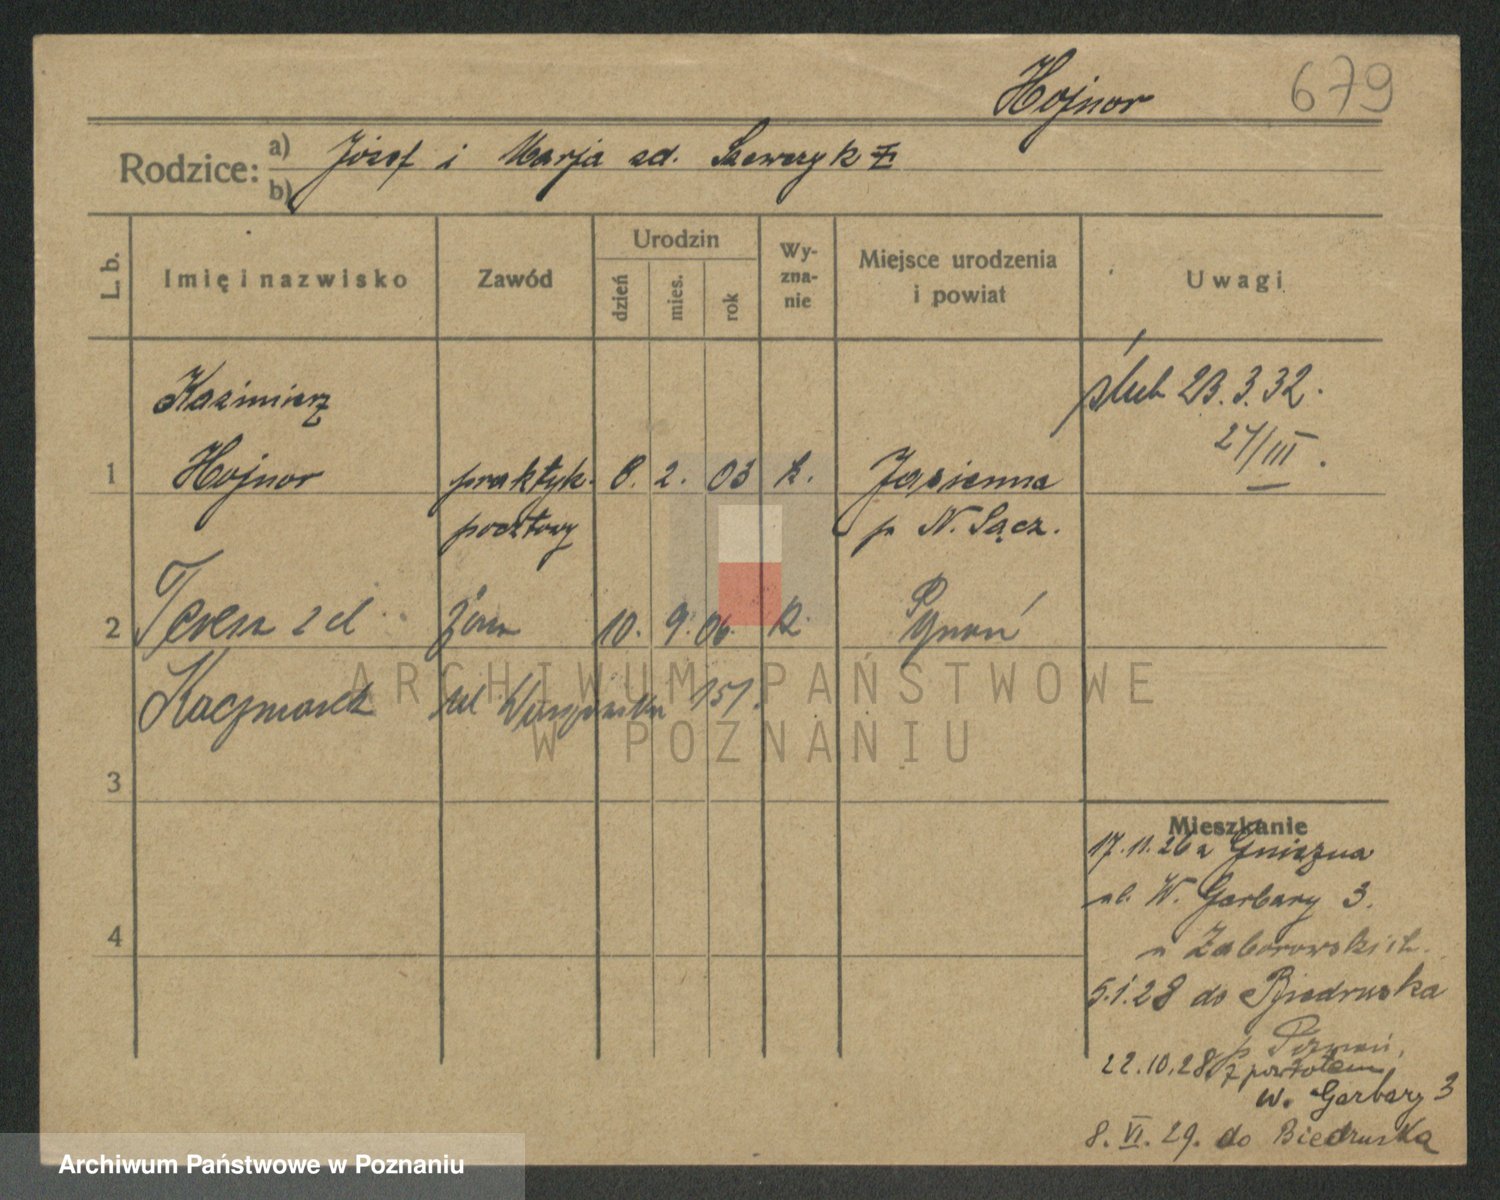 Hojnor
679
Rodzice:
a) Józef i Marja zd. Szewczyk
b)
L. b.
Imię i nazwisko
Zawód
Urodzin
dzień
mies.
rok
Wy-
zna-
nie
Miejsce urodzenia
i powiat
Uwagi
Kazimierz
ślub 23.3.32.
27/III.
1 Hojnor praktyk. 8. 2. 03 k. Jasienna
pocztowy p N. Sącz.
2 Teresa zd żona 10. 9. 06. k. Poznań
Kaczmarek 151.
ARCHIWUM PAŃSTWOWE
W POZNANIU
3
Mieszkanie
17.11.26 z Gniezna
ul. W. Garbary 3.
u Zaborowskich.
4
5.1.28 do Biedruska
p Poznań,
22.10.28 z powrotem
W. Garbary 3
8.VI.29. do Biedruska
Archiwum Państwowe w Poznaniu